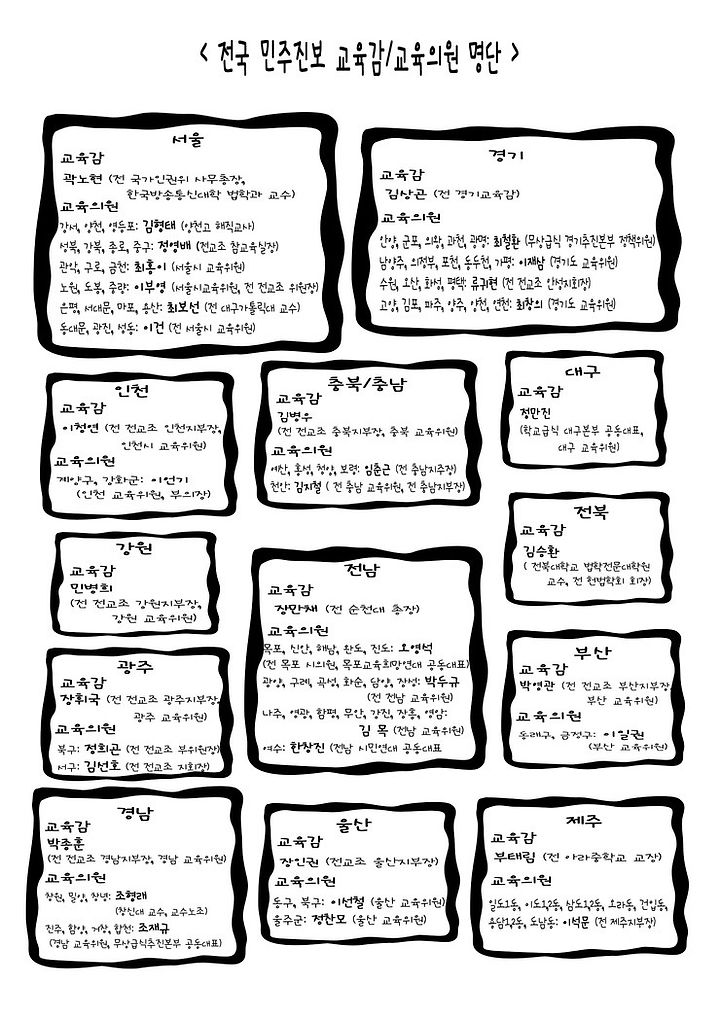 < 전국 민주진보 교육감/교육의원 명단 >
서울
교육감
곽노현 (전 국가인권위 사무총장,
한국방송통신대학 법학과 교수)
교육의원
강서, 양천, 영등포: 김형태 (양천고 해직교사)
성북, 강북, 종로, 중구: 정영배 (전교조 참교육실장)
관악, 구로, 금천: 최홍이 (서울시 교육위원)
노원, 도봉, 중랑: 이부영 (서울시교육위원, 전 전교조 위원장)
은평, 서대문, 마포, 용산: 최보선 (전 대구가톨릭대 교수)
동대문, 광진, 성동: 이건 (전 서울시 교육위원)
경기
교육감
김상곤 (전 경기교육감)
교육의원
안양, 군포, 의왕, 과천, 광명: 최철환 (무상급식 경기추진본부 정책위원)
남양주, 의정부, 포천, 동두천, 가평: 이재삼 (경기도 교육위원)
수원, 오산, 화성, 평택: 류귀현 (전 전교조 안성지회장)
고양, 김포, 파주, 양주, 양천, 연천: 최창의 (경기도 교육위원)
인천
교육감
이청연 (전 전교조 인천지부장,
인천시 교육위원)
교육의원
계양구, 강화군: 이언기
(인천 교육위원, 부의장)
충북/충남
교육감
김병우
(전 전교조 충북지부장, 충북 교육위원)
교육의원
예산, 홍성, 청양, 보령: 임춘근 (전 충남지부장)
천안: 김지철 ( 전 충남 교육위원, 전 충남지부장)
대구
교육감
정만진
(학교급식 대구본부 공동대표,
대구 교육위원)
강원
교육감
민병희
(전 전교조 강원지부장,
강원 교육위원)
전남
교육감
장만채 (전 순천대 총장)
교육의원
목포, 신안, 해남, 완도, 진도: 오영석
(전 목포 시의원, 목포교육희망연대 공동대표)
광양, 구례, 곡성, 화순, 담양, 장성: 박두규
(전 전남 교육위원)
나주, 영광, 함평, 무안, 강진, 장흥, 영암:
김 목 (전남 교육위원)
여수: 한창진 (전남 시민연대 공동대표
전북
교육감
김승환
( 전북대학교 법학전문대학원
교수, 전 헌법학회 회장)
광주
교육감
장휘국 (전 전교조 광주지부장,
광주 교육위원)
교육의원
북구: 정희곤 (전 전교조 부위원장)
서구: 김선호 (전 전교조 지회장)
부산
교육감
박영관 (전 전교조 부산지부장
부산 교육위원)
교육의원
동래구, 금정구: 이일권
(부산 교육위원)
경남
교육감
박종훈
(전 전교조 경남지부장, 경남 교육위원)
교육의원
창원, 밀양, 창녕: 조형래
(창신대 교수, 교수노조)
진주, 함양, 거창, 합천: 조재규
(경남 교육위원, 무상급식추진본부 공동대표)
울산
교육감
장인권 (전교조 울산지부장)
교육의원
동구, 북구: 이선철 (울산 교육위원)
울주군: 정찬모 (울산 교육위원)
제주
교육감
부태림 (전 아라중학교 교장)
교육의원
일도1동, 이도1,2동, 삼도1,2동, 오라동, 건입동,
용담1,2동, 도남동: 이석문 (전 제주지부장)